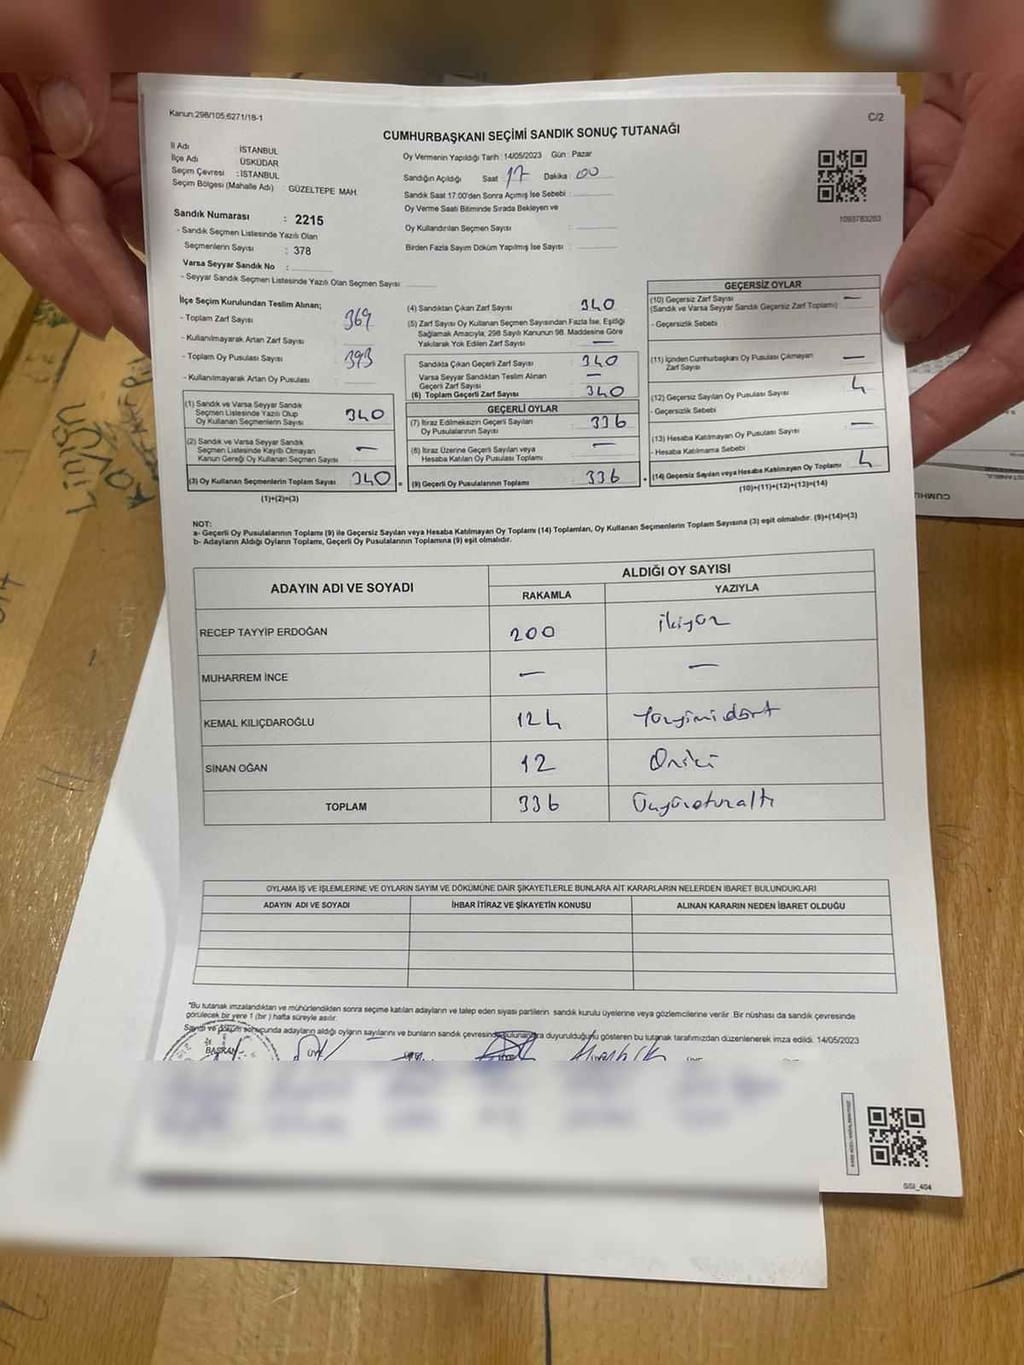 Kanun:298/105,6271/18-1
C/2
CUMHURBAŞKANI SEÇİMİ SANDIK SONUÇ TUTANAĞI
İl Adı : İSTANBUL
İlçe Adı ÜSKÜDAR
Seçim Çevresi : İSTANBUL
Seçim Bölgesi (Mahalle Adı) GÜZELTEPE MAH.
Sandık Numarası : 2215
- Sandık Seçmen Listesinde Yazılı Olan
Seçmenlerin Sayısı : 378
Varsa Seyyar Sandık No :
- Seyyar Sandık Seçmen Listesinde Yazılı Olan Seçmen Sayısı
Oy Vermenin Yapıldığı Tarih : 14/05/2023 Gün : Pazar
Sandığın Açıldığı Saat : 17 Dakika : 00
Sandık Saat 17:00'den Sonra Açılmış İse Sebebi :
Oy Verme Saati Bitiminde Sırada Bekleyen ve
Oy Kullandırılan Seçmen Sayısı :
Birden Fazla Sayım Döküm Yapılmış İse Sayısı :
1093783203
İlçe Seçim Kurulundan Teslim Alınan;
- Toplam Zarf Sayısı 369
- Kullanılmayarak Artan Zarf Sayısı
- Toplam Oy Pusulası Sayısı 393
- Kullanılmayarak Artan Oy Pusulası
(1) Sandık ve Varsa Seyyar Sandık
Seçmen Listesinde Yazılı Olup
Oy Kullanan Seçmenlerin Sayısı 340
(2) Sandık ve Varsa Seyyar Sandık
Seçmen Listesinde Kayıtlı Olmayan
Kanun Gereği Oy Kullanan Seçmen Sayısı —
(3) Oy Kullanan Seçmenlerin Toplam Sayısı 340
(1)+(2)=(3)
(4) Sandıktan Çıkan Zarf Sayısı 340
(5) Zarf Sayısı Oy Kullanan Seçmen Sayısından Fazla İse, Eşitliği
Sağlamak Amacıyla, 298 Sayılı Kanunun 98. Maddesine Göre
Yakılarak Yok Edilen Zarf Sayısı —
Sandıkta Çıkan Geçerli Zarf Sayısı 340
Varsa Seyyar Sandıktan Teslim Alınan
Geçerli Zarf Sayısı —
(6) Toplam Geçerli Zarf Sayısı 340
GEÇERLİ OYLAR
(7) İtiraz Edilmeksizin Geçerli Sayılan
Oy Pusulalarının Sayısı 336
(8) İtiraz Üzerine Geçerli Sayılan veya
Hesaba Katılan Oy Pusulası Toplamı —
= (9) Geçerli Oy Pusulalarının Toplamı 336
GEÇERSİZ OYLAR
(10) Geçersiz Zarf Sayısı —
(Sandık ve Varsa Seyyar Sandık Geçersiz Zarf Toplamı)
- Geçersizlik Sebebi
(11) İçinden Cumhurbaşkanı Oy Pusulası Çıkmayan
Zarf Sayısı —
(12) Geçersiz Sayılan Oy Pusulası Sayısı 4
- Geçersizlik Sebebi
(13) Hesaba Katılmayan Oy Pusulası Sayısı —
- Hesaba Katılmama Sebebi
+ (14) Geçersiz Sayılan veya Hesaba Katılmayan Oy Toplamı 4
(10)+(11)+(12)+(13)=(14)
NOT:
a- Geçerli Oy Pusulalarının Toplamı (9) ile Geçersiz Sayılan veya Hesaba Katılmayan Oy Toplamı (14) Toplamları, Oy Kullanan Seçmenlerin Toplam Sayısına (3) eşit olmalıdır. (9)+(14)=(3)
b- Adayların Aldığı Oyların Toplamı, Geçerli Oy Pusulalarının Toplamına (9) eşit olmalıdır.
ADAYIN ADI VE SOYADI ALDIĞI OY SAYISI
RAKAMLA YAZIYLA
RECEP TAYYİP ERDOĞAN 200 ikiyüz
MUHARREM İNCE — —
KEMAL KILIÇDAROĞLU 124 Yüzyirmidört
SİNAN OĞAN 12 Oniki
TOPLAM 336 Üçyüzotuzaltı
OYLAMA İŞ VE İŞLEMLERİNE VE OYLARIN SAYIM VE DÖKÜMÜNE DAİR ŞİKAYETLERLE BUNLARA AİT KARARLARIN NELERDEN İBARET BULUNDUKLARI
ADAYIN ADI VE SOYADI İHBAR İTİRAZ VE ŞİKAYETİN KONUSU ALINAN KARARIN NEDEN İBARET OLDUĞU
*Bu tutanak imzalandıktan ve mühürlendikten sonra seçime katılan adayların ve talep eden siyasi partilerin sandık kurulu üyelerine veya gözlemcilerine verilir. Bir nüshası da sandık çevresinde
görülecek bir yere 1 (bir) hafta süreyle asılır.
Sayım ve döküm sonucunda adayların aldığı oyların sayılarını ve bunların sandık çevresinde bulunanlara duyurulduğunu gösteren bu tutanak tarafımızdan düzenlenerek imza edildi. 14/05/2023
BAŞKAN
SSI_404